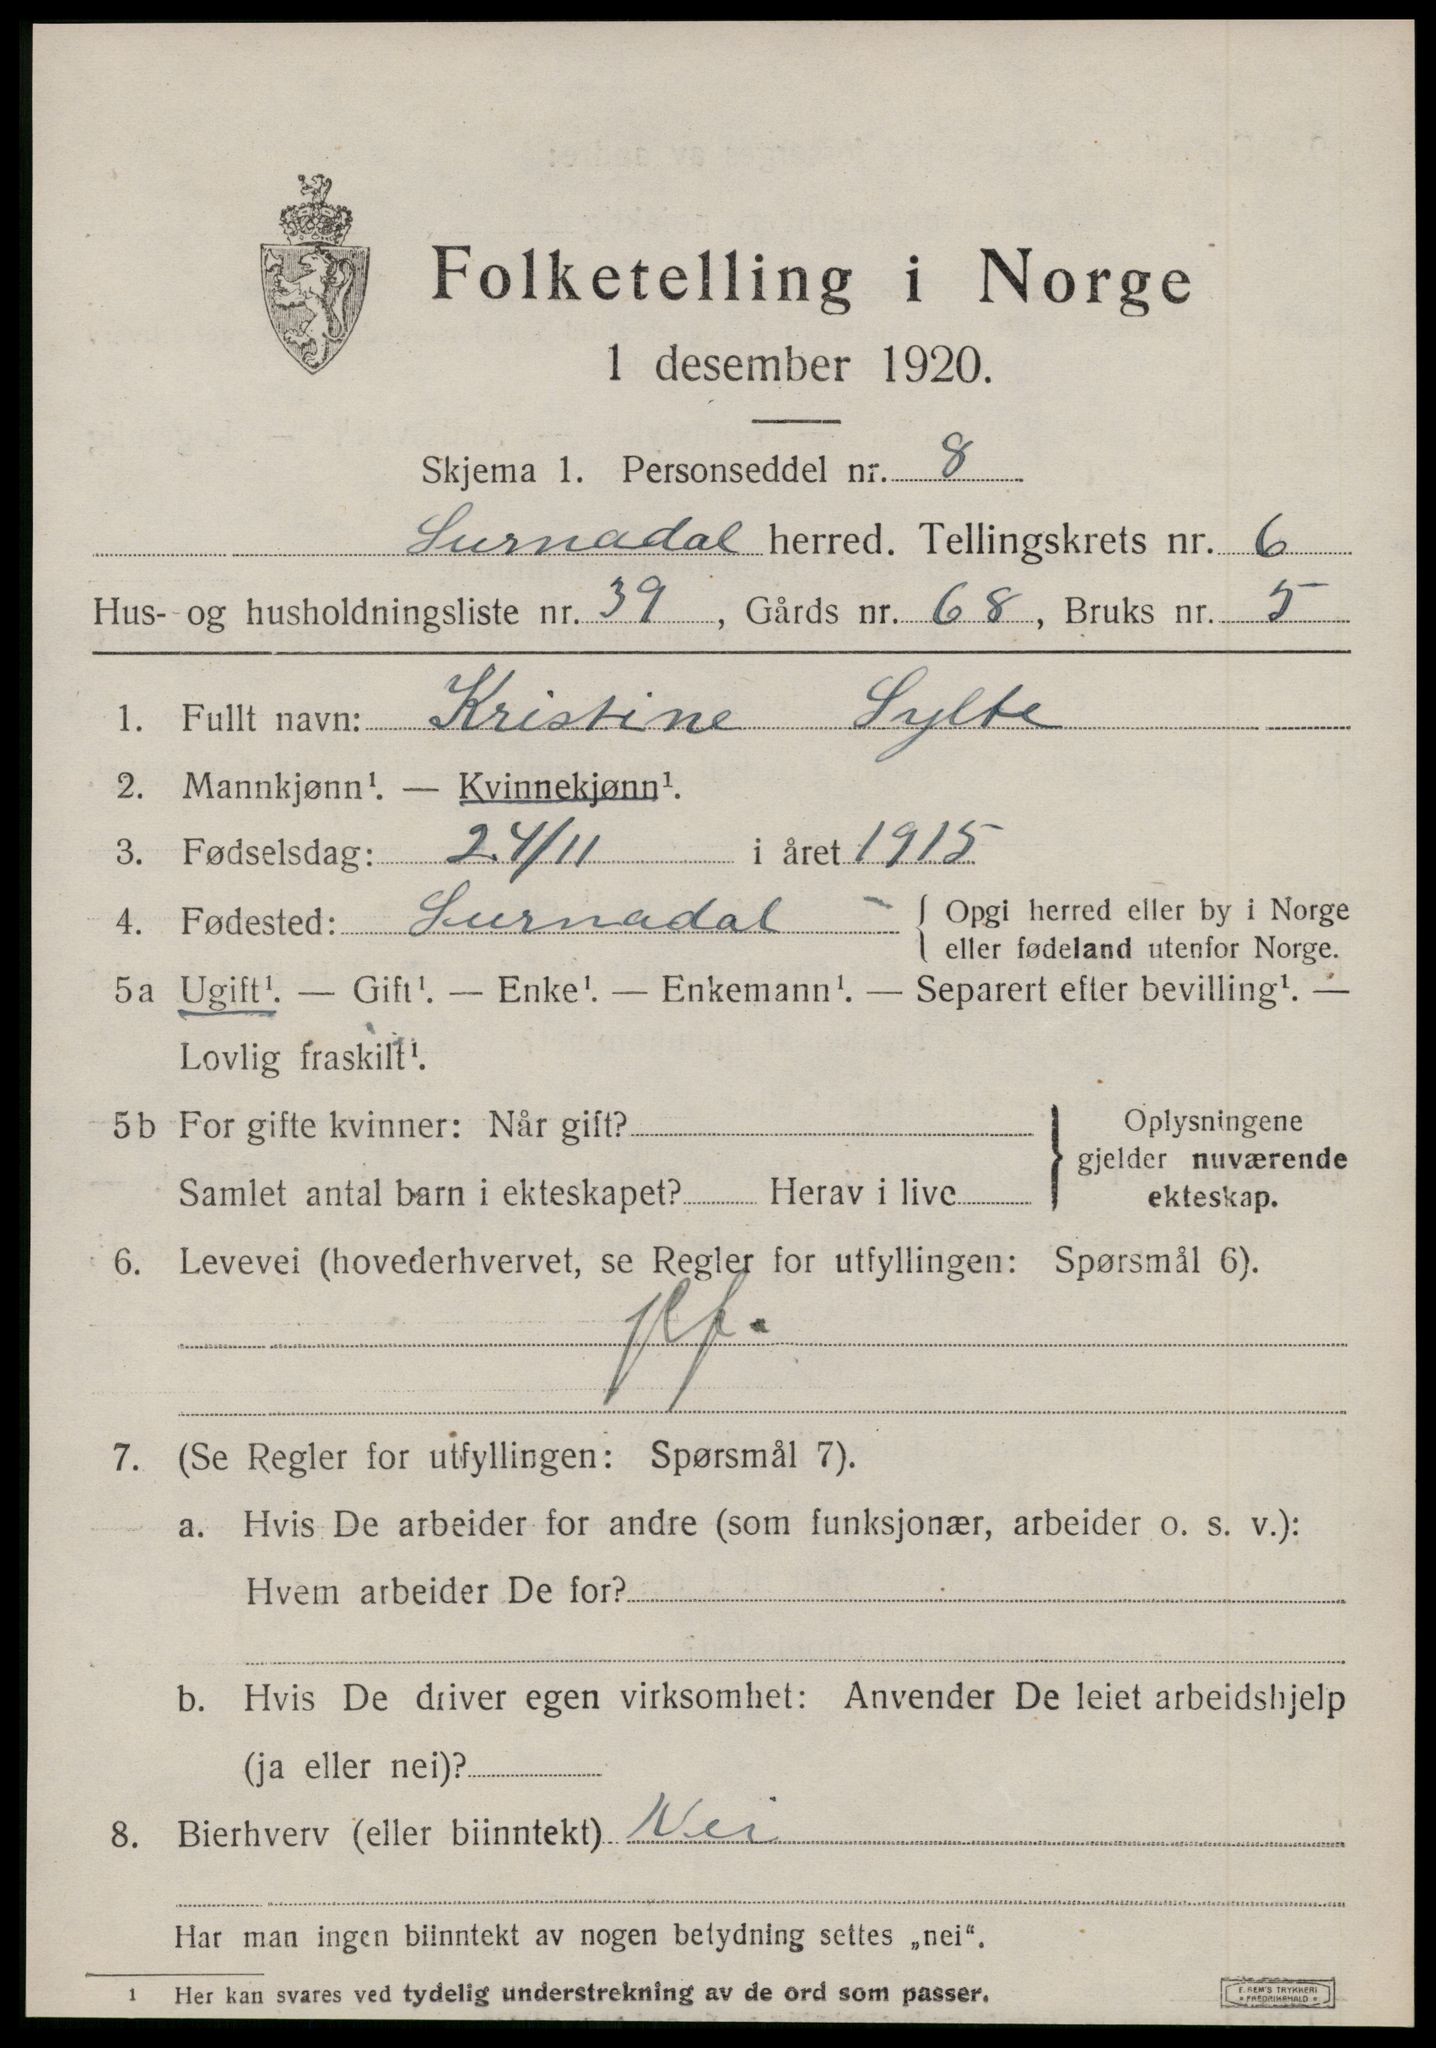 Folketelling i Norge
1 desember 1920.
Skjema 1. Personseddel nr. 8
Surnadal herred. Tellingskrets nr. 6
Hus- og husholdningsliste nr. 39, Gårds nr. 68, Bruks nr. 5
1. Fullt navn: Kristine Sylte
2. Mannkjønn¹. — Kvinnekjønn¹.
3. Fødselsdag: 24/11 i året 1915
4. Fødested: Surnadal { Opgi herred eller by i Norge
eller fødeland utenfor Norge.
5a Ugift¹. — Gift¹. — Enke¹. — Enkemann¹. — Separert efter bevilling¹. —
Lovlig fraskilt¹.
5b For gifte kvinner: Når gift?
Samlet antal barn i ekteskapet? Herav i live
} Oplysningene
gjelder nuværende
ekteskap.
6. Levevei (hovederhvervet, se Regler for utfyllingen: Spørsmål 6).
7. (Se Regler for utfyllingen: Spørsmål 7).
a. Hvis De arbeider for andre (som funksjonær, arbeider o. s. v.):
Hvem arbeider De for?
b. Hvis De driver egen virksomhet: Anvender De leiet arbeidshjelp
(ja eller nei)?
8. Bierhverv (eller biinntekt) Nei
Har man ingen biinntekt av nogen betydning settes „nei“.
1 Her kan svares ved tydelig understrekning av de ord som passer.
E. SEM'S TRYKKERI
FREDRIKSHALD